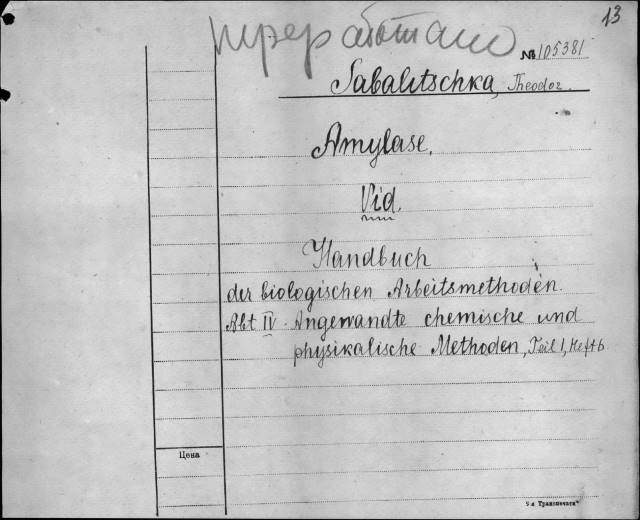 13
переработано
№ 105381
Sabalitschka, Theodor.
Amylase.
Vid.
Handbuch
der biologischen Arbeitsmethoden.
Abt IV. Angewandte chemische und
physikalische Methoden, Teil 1, Heft 6
Цена
9-я Транспечать"